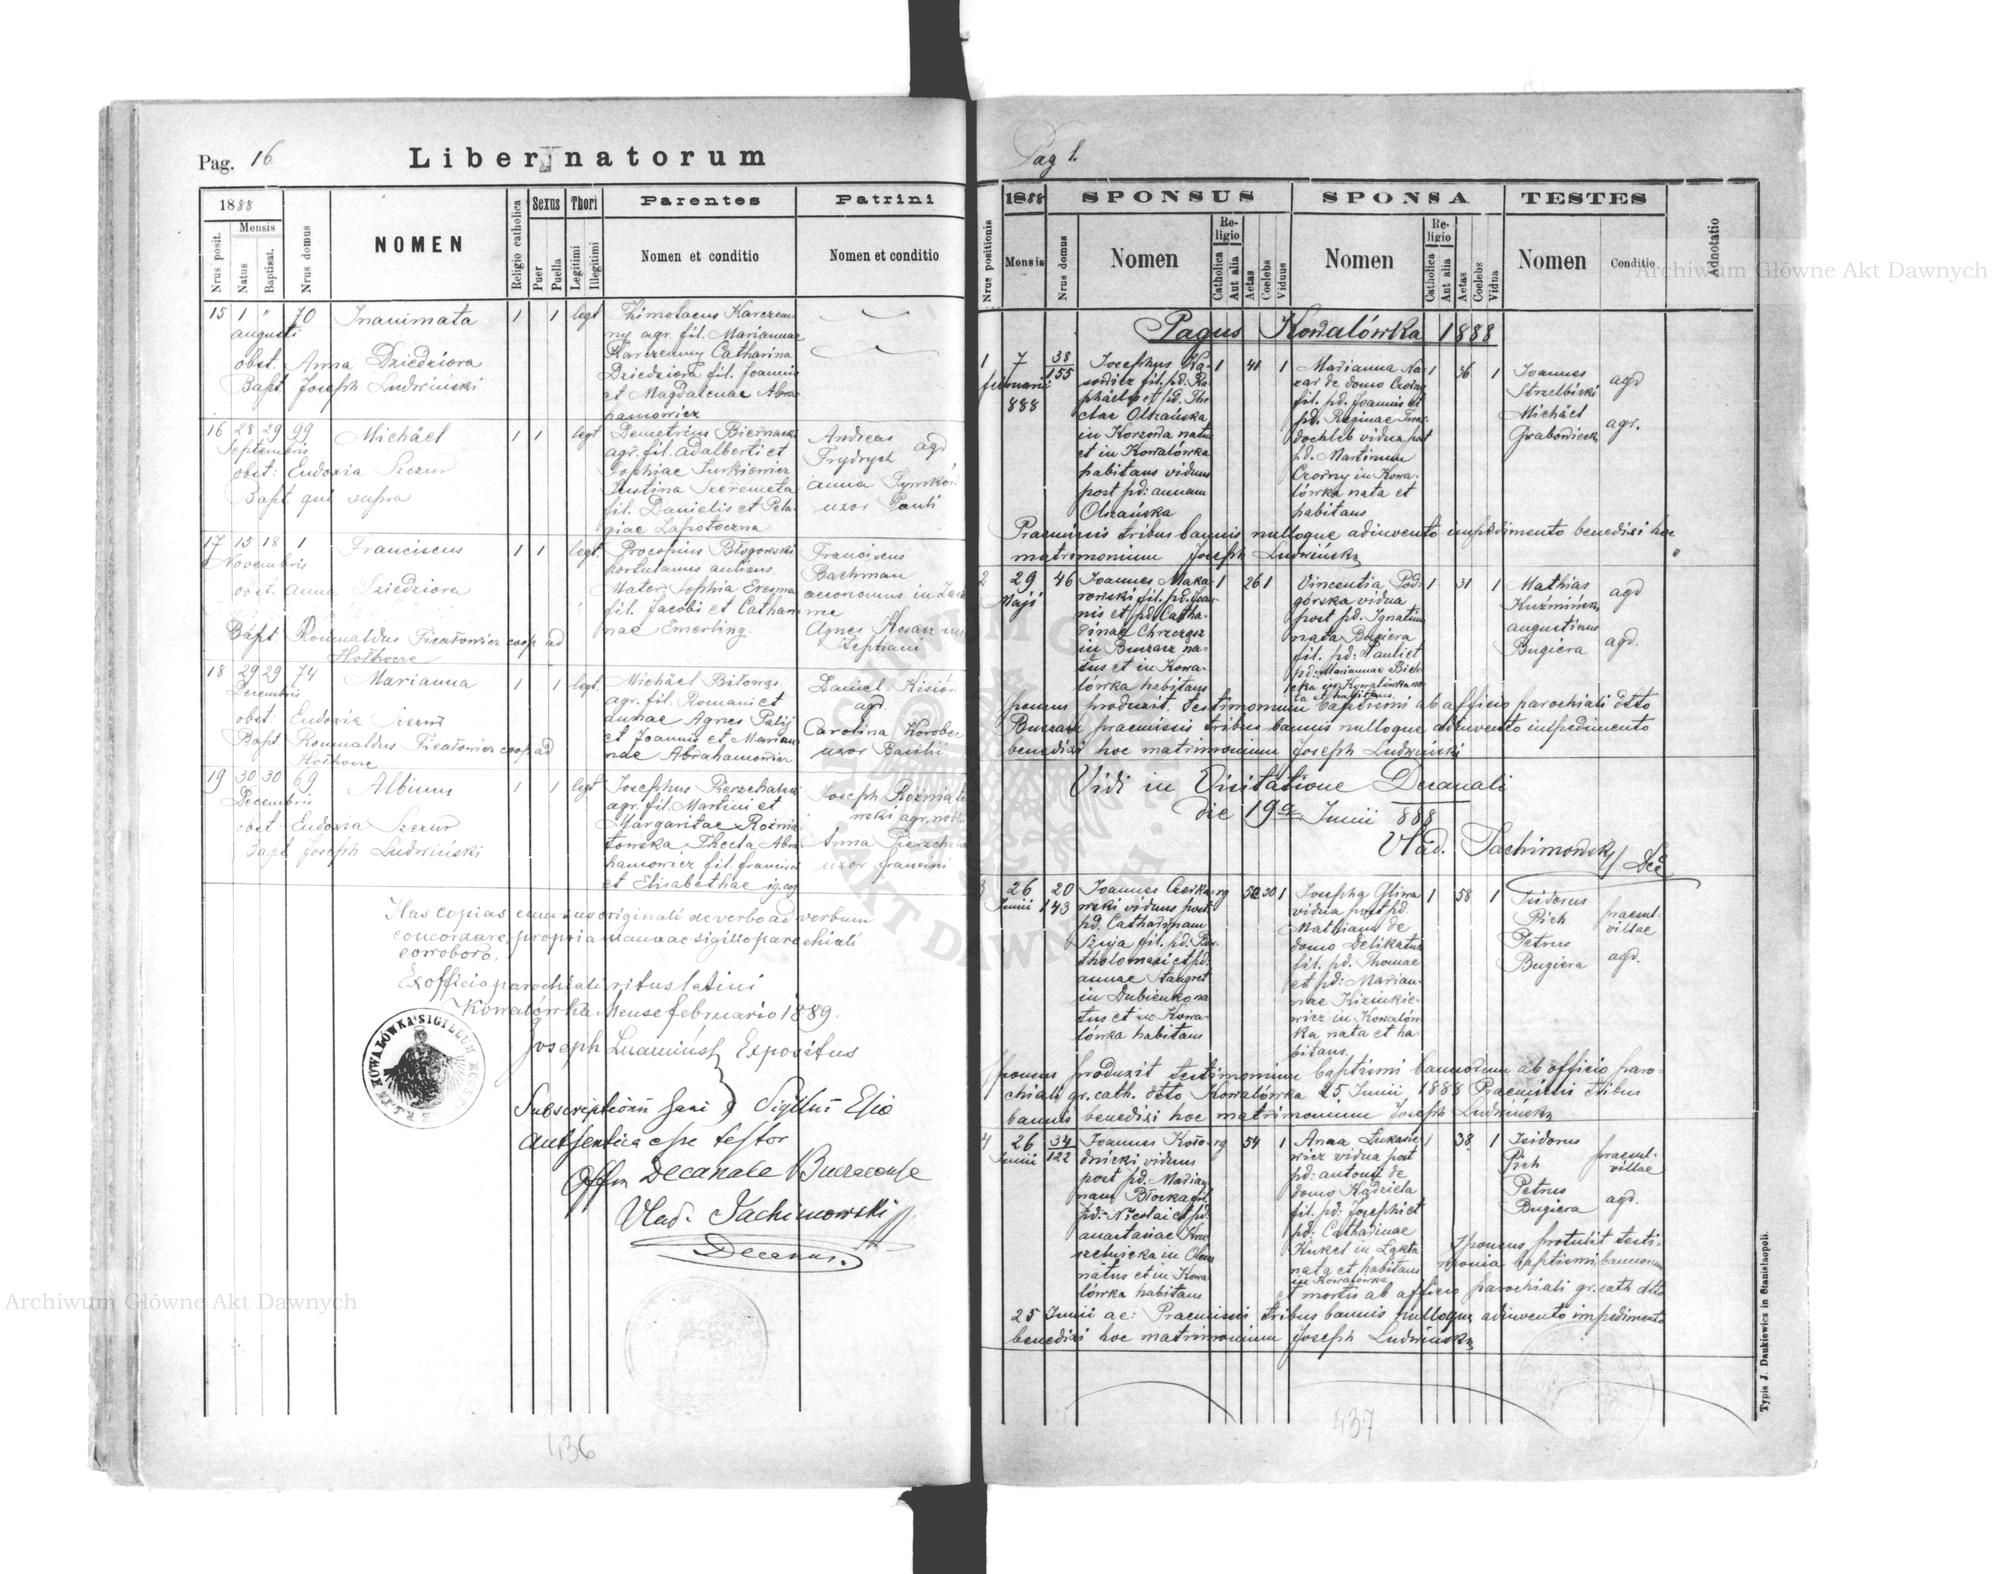 Pag. 16
Liber natorum
1888
Mensis
Nrus posit.
Natus
Baptisat.
Nrus domus
NOMEN
Religio catholica
Sexus
Puer
Puella
Thori
Legitimi
Illegitimi
Parentes
Nomen et conditio
Patrini
Nomen et conditio
15 1 " 70 Inanimata 1 1 legt
augusti
obst. Anna Dziedziora
Bapt Joseph Ludwiński
Thimotaeus Karczem
ny agr. fil. Mariannae
Karczemny Catharina
Dziedziora fil. Joannis
et Magdalenae Abra
hamowicz
16 28 29 99 Michäel 1 1 legt
Septembris
obst: Eudoxia Szczur
Bapt qui supra
Demetrius Biernacki
agr. fil. adalberti et
Sophiae Turkiewicz
Justina Szeremeta
fil. Danielis et Pela
giae Lapotoczna
Andreas
Frydrych agd
anna
uxor Pauli
17 15 18 1 Franciscus 1 1 legt.
Novembris
obst. anna Dziedziora
Bapt Romualdus coop ad
Procopius
Mater Sophia
fil. Jacobi et Cathari
nae Emerling.
Franciscus
Bachman
oeconomus in
Agnes
Stephani
18 29 29 74 Marianna 1 1 legt.
Decembris
obst: Eudoxia Szczur
Bapt Romualdus coop ad
Michäel
agr. fil. Romani et
annae Agnes Palij
et Joannis et Marian
nae Abrahamowicz
Daniel
agd.
Carolina
uxor Basilii
19 30 30 69 Albinus 1 1 legt
Decembris
obst. Eudoxia Szczur
Bapt. Joseph Ludwiński
Josephus Pierzchała
agr. fil. Martini et
Margaritae Roznia
towska Thecla Abra
hamowicz fil. francisci
et Elisabethae
Joseph Roznia to
wski agr.
Anna Pierzchała
uxor francisci
Has copias cum suo originali de verbo ad verbum
concordare, propria manu ac sigillo parochiali
corroboro.
Ex officio parochiali ritus latini
Kowalówka Mense februario 1889.
Joseph Ludwiński Expositus
authentica esse testor
Decanale Buczacense
Vlad. Jachimowski
Decanus.
436
Pag 1.
Nrus positionis
1888
Mensis
Nrus domus
SPONSUS
Nomen
Religio
Catholica
Aut alia
Aetas
Coelebs
Viduus
SPONSA
Nomen
Religio
Catholica
Aut alia
Aetas
Coelebs
Vidua
TESTES
Nomen
Conditio
Adnotatio
Pagus Kowalówka 1888
1 7 38
februarii 155
888
fil. pd. Ra
phäelis et pd. The
clae Olszańska
in Korzowa natus
et in Kowalówka
habitans viduus
post pd: annam
Olszańska
1 41 1
Marianna Na
zar de domo Czorny
fil. pd. Joannis et
pd. Reginae Twar
dochleb vidua post
pd. Martinum
Czorny in Kowa-
lówka nata et
habitans
1 36 1
Joannes
Strzelbicki agd
Michäel
Grabowiecki agr.
Praemissis tribus bannis nulloque adinvento impedimento benedixi hoc
matrimonium Joseph Ludwiński
2 29 46
Maji
Joannes Maka-
rowski fil. pd. Joan-
nis et pd Catha-
rinae Chrzczasz
in Buczacz na-
tus et in Kowa-
lówka habitans
1 26 1
Vincentia Pod-
górska vidua
post pd. Ignatium
nata Bugiera
fil. pd: Pauli et
pd: Mariannae
in Kowalówka na-
ta et habitans
1 31 1
Mathias
Kuźmiński agd
augustinus
Bugiera agd.
sponsus produxit testimonium baptismi ab officio parochiali dtto
Buczacz praemissis tribus bannis nulloque adinvento impedimento
benedixi hoc matrimonium Joseph Ludwiński
Vidi in Visitatione Decanali
die 19a Junii 888
Vlad. Jachimowski Dec
3 26 20
Junii 143
Joannes
viduus post
pd. Catharinam
fil. pd: Bar
tholomaei et pd:
annae
in Dubienko na
tus et in Kowa-
lówka habitans
Josepha Gliwa
vidua post pd
Mathiam de
domo Delikatna
fil. pd. Thomae
et pd: Marian-
nae
in Kowalów
ka nata et ha-
bitans.
1 58 1
Isidorus
Pich
Petrus
Bugiera agd.
sponsus produxit testimonium baptismi bannorum ab officio paro-
chiali gr. cath. dtto Kowalówka 25 Junii 1888 Praemissis tribus
bannis benedixi hoc matrimonium Joseph Ludwiński
4 26 34
Junii 122
Joannes Koło-
dnicki viduus
post pd. Marian
nam
pd: Nicolai et pd:
anastasiae
natus et in Kowa
lówka habitans
54 1
Anna Łukasie
wicz vidua post
pd: antonii de
domo Kądziela
fil. pd: Josephi et
pd: Catharinae
nata et habitans
in Kowalówka
1 38 1
Isidorus
Pich
Petrus
Bugiera agd.
Sponsus protulit testi-
monia baptismi bannorum
et mortis ab officio parochiali gr. cath dtto
25 Junii ac: Praemissis tribus bannis nulloque adinvento impedimento
benedixi hoc matrimonium Joseph Ludwiński
437
Typis J. Dankiewicz in Stanislaopoli.
Archiwum Główne Akt Dawnych
Archiwum Główne Akt Dawnych